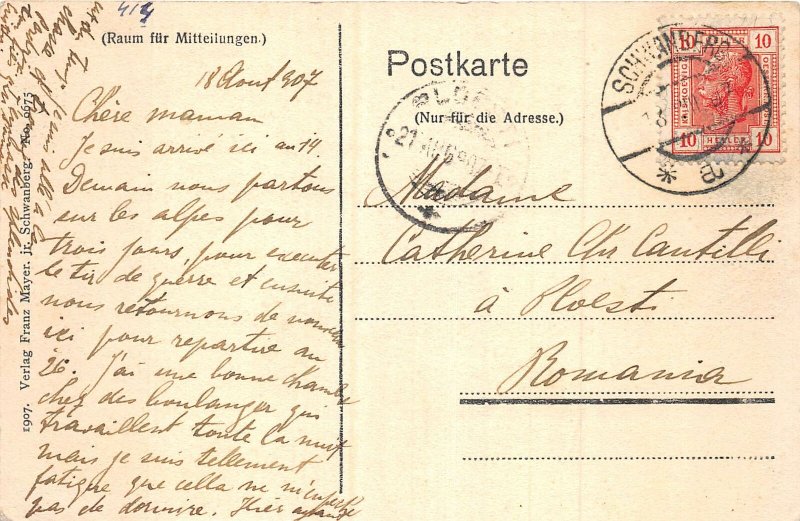 414
(Raum für Mitteilungen.)
18 Aout 907
Chère maman
Je suis arrivé ici au 14.
Demain nous partons
sur les alpes pour
trois jours, pour executer
le tir de guerre et ensuite
nous retournons de nouveau
ici pour repartire au
26. J'ai une bonne chambre
chez des boulanger qui
travaillent toute la nuit
mais je suis tellement
fatigue que cella ne m'empeche
pas de dormire. Hier
1907. Verlag Franz Mayer, jr. Schwanberg. No. 9975
Postkarte
(Nur für die Adresse.)
Madame
Catherine Chr Cantilli
à Ploesti
Romania
SCHWANBERG
PLOESCI
21 AUG 907
10 10
10 HELLER 10